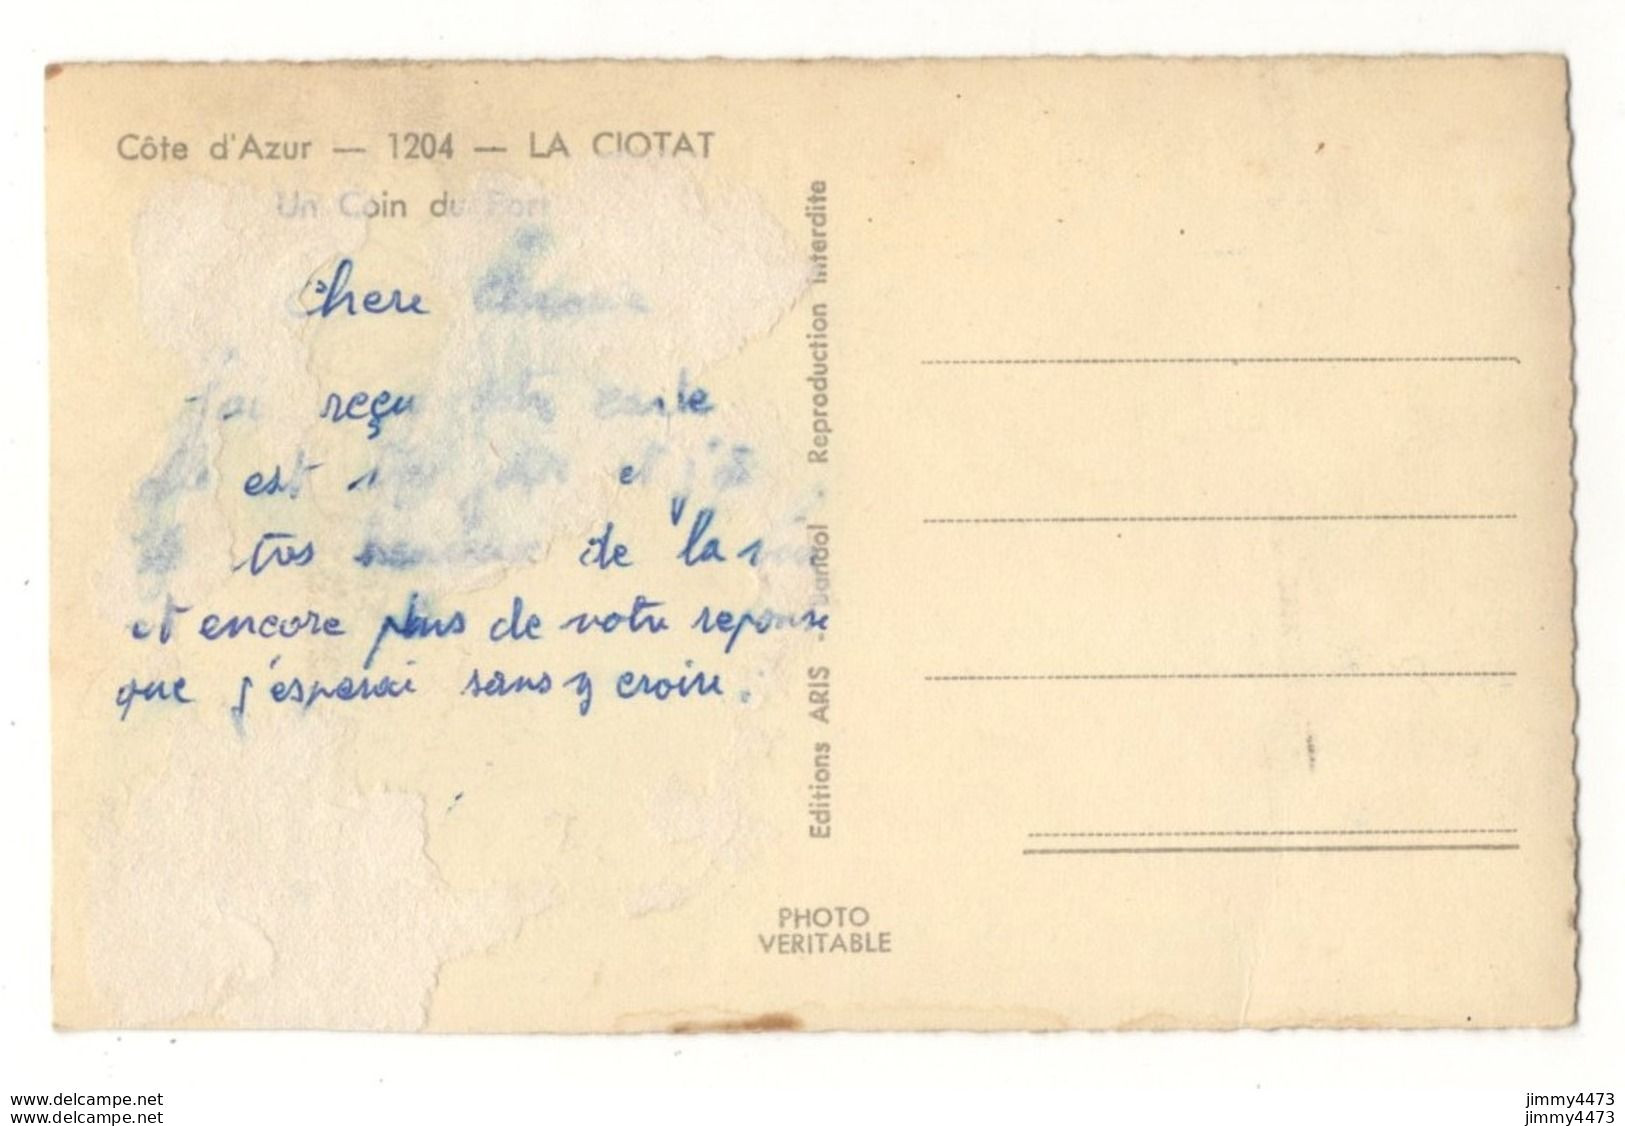 Côte d'Azur — 1204 — LA CIOTAT
Un Coin du Port
Chere
J'ai reçu votre carte
est et j'
tres de la
et encore plus de votre reponse
que j'esperai sans y croire.
Editions ARIS - Bandol Reproduction interdite
PHOTO
VERITABLE
www.delcampe.net
www.delcampe.net
jimmy4473
jimmy4473